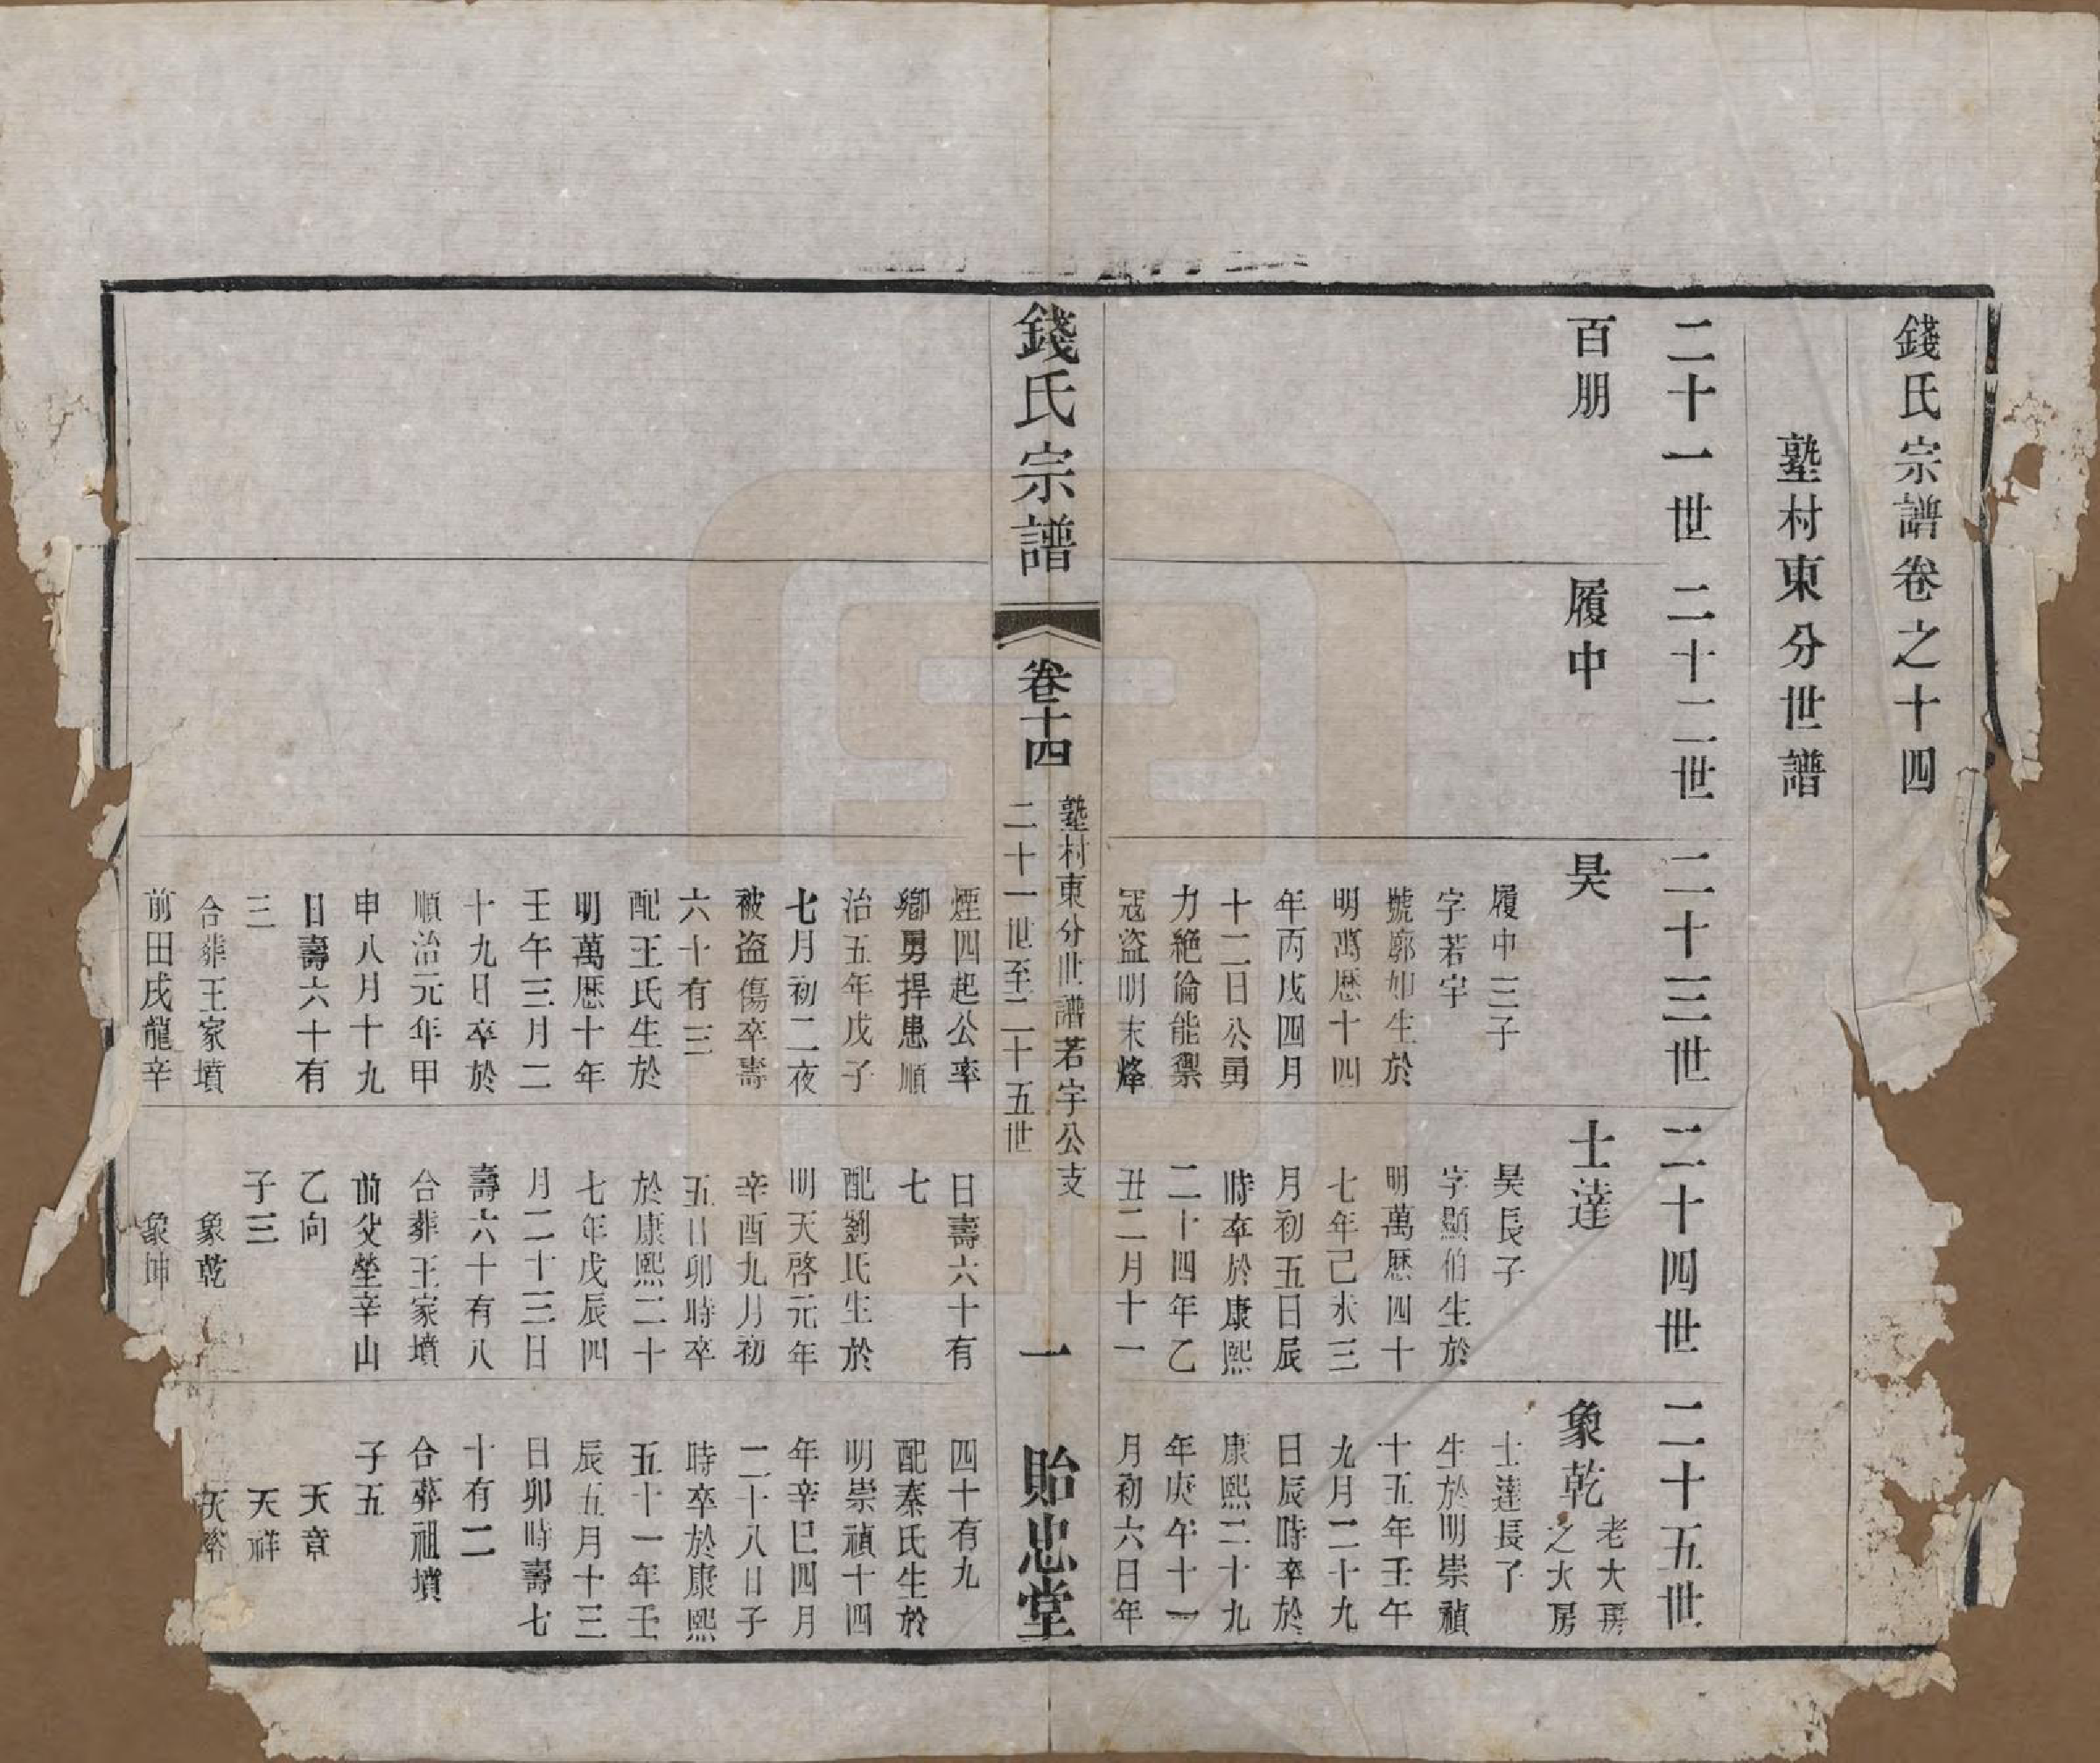 錢氏宗譜卷之十四
塾村東分世譜
二十一世
二十二世
二十三世
二十四世
二十五世
百朋
履中
昊
履中三子
字若宇
號廓如生於
明萬歷十四
年丙戌四月
十二日公勇
力絕倫能禦
寇盜明末烽
煙四起公率
鄉勇捍患順
治五年戊子
七月初二夜
被盜傷卒壽
六十有三
配王氏生於
明萬歷十年
壬午三月二
十九日卒於
順治元年甲
申八月十九
日壽六十有
三
合葬王家墳
前田戌龍辛
士達
昊長子
字顯伯生於
明萬歷四十
七年己未三
月初五日辰
時卒於康熙
二十四年乙
丑二月十一
日壽六十有
七
配劉氏生於
明天啓元年
辛酉九月初
五日卯時卒
於康熙二十
七年戊辰四
月二十三日
壽六十有八
合葬王家墳
前父塋辛山
乙向
子三
象乾
象坤
象乾
老大房
之大房
士達長子
生於明崇禎
十五年壬午
九月二十九
日辰時卒於
康熙二十九
年庚午十一
月初六日年
四十有九
配秦氏生於
明崇禎十四
年辛巳四月
二十八日子
時卒於康熙
五十一年壬
辰五月十三
日卯時壽七
十有二
合葬祖墳
子五
天章
天祥
天
錢氏宗譜
卷十四
塾村東分世譜若宇公支
二十一世至二十五世
一
貽忠堂